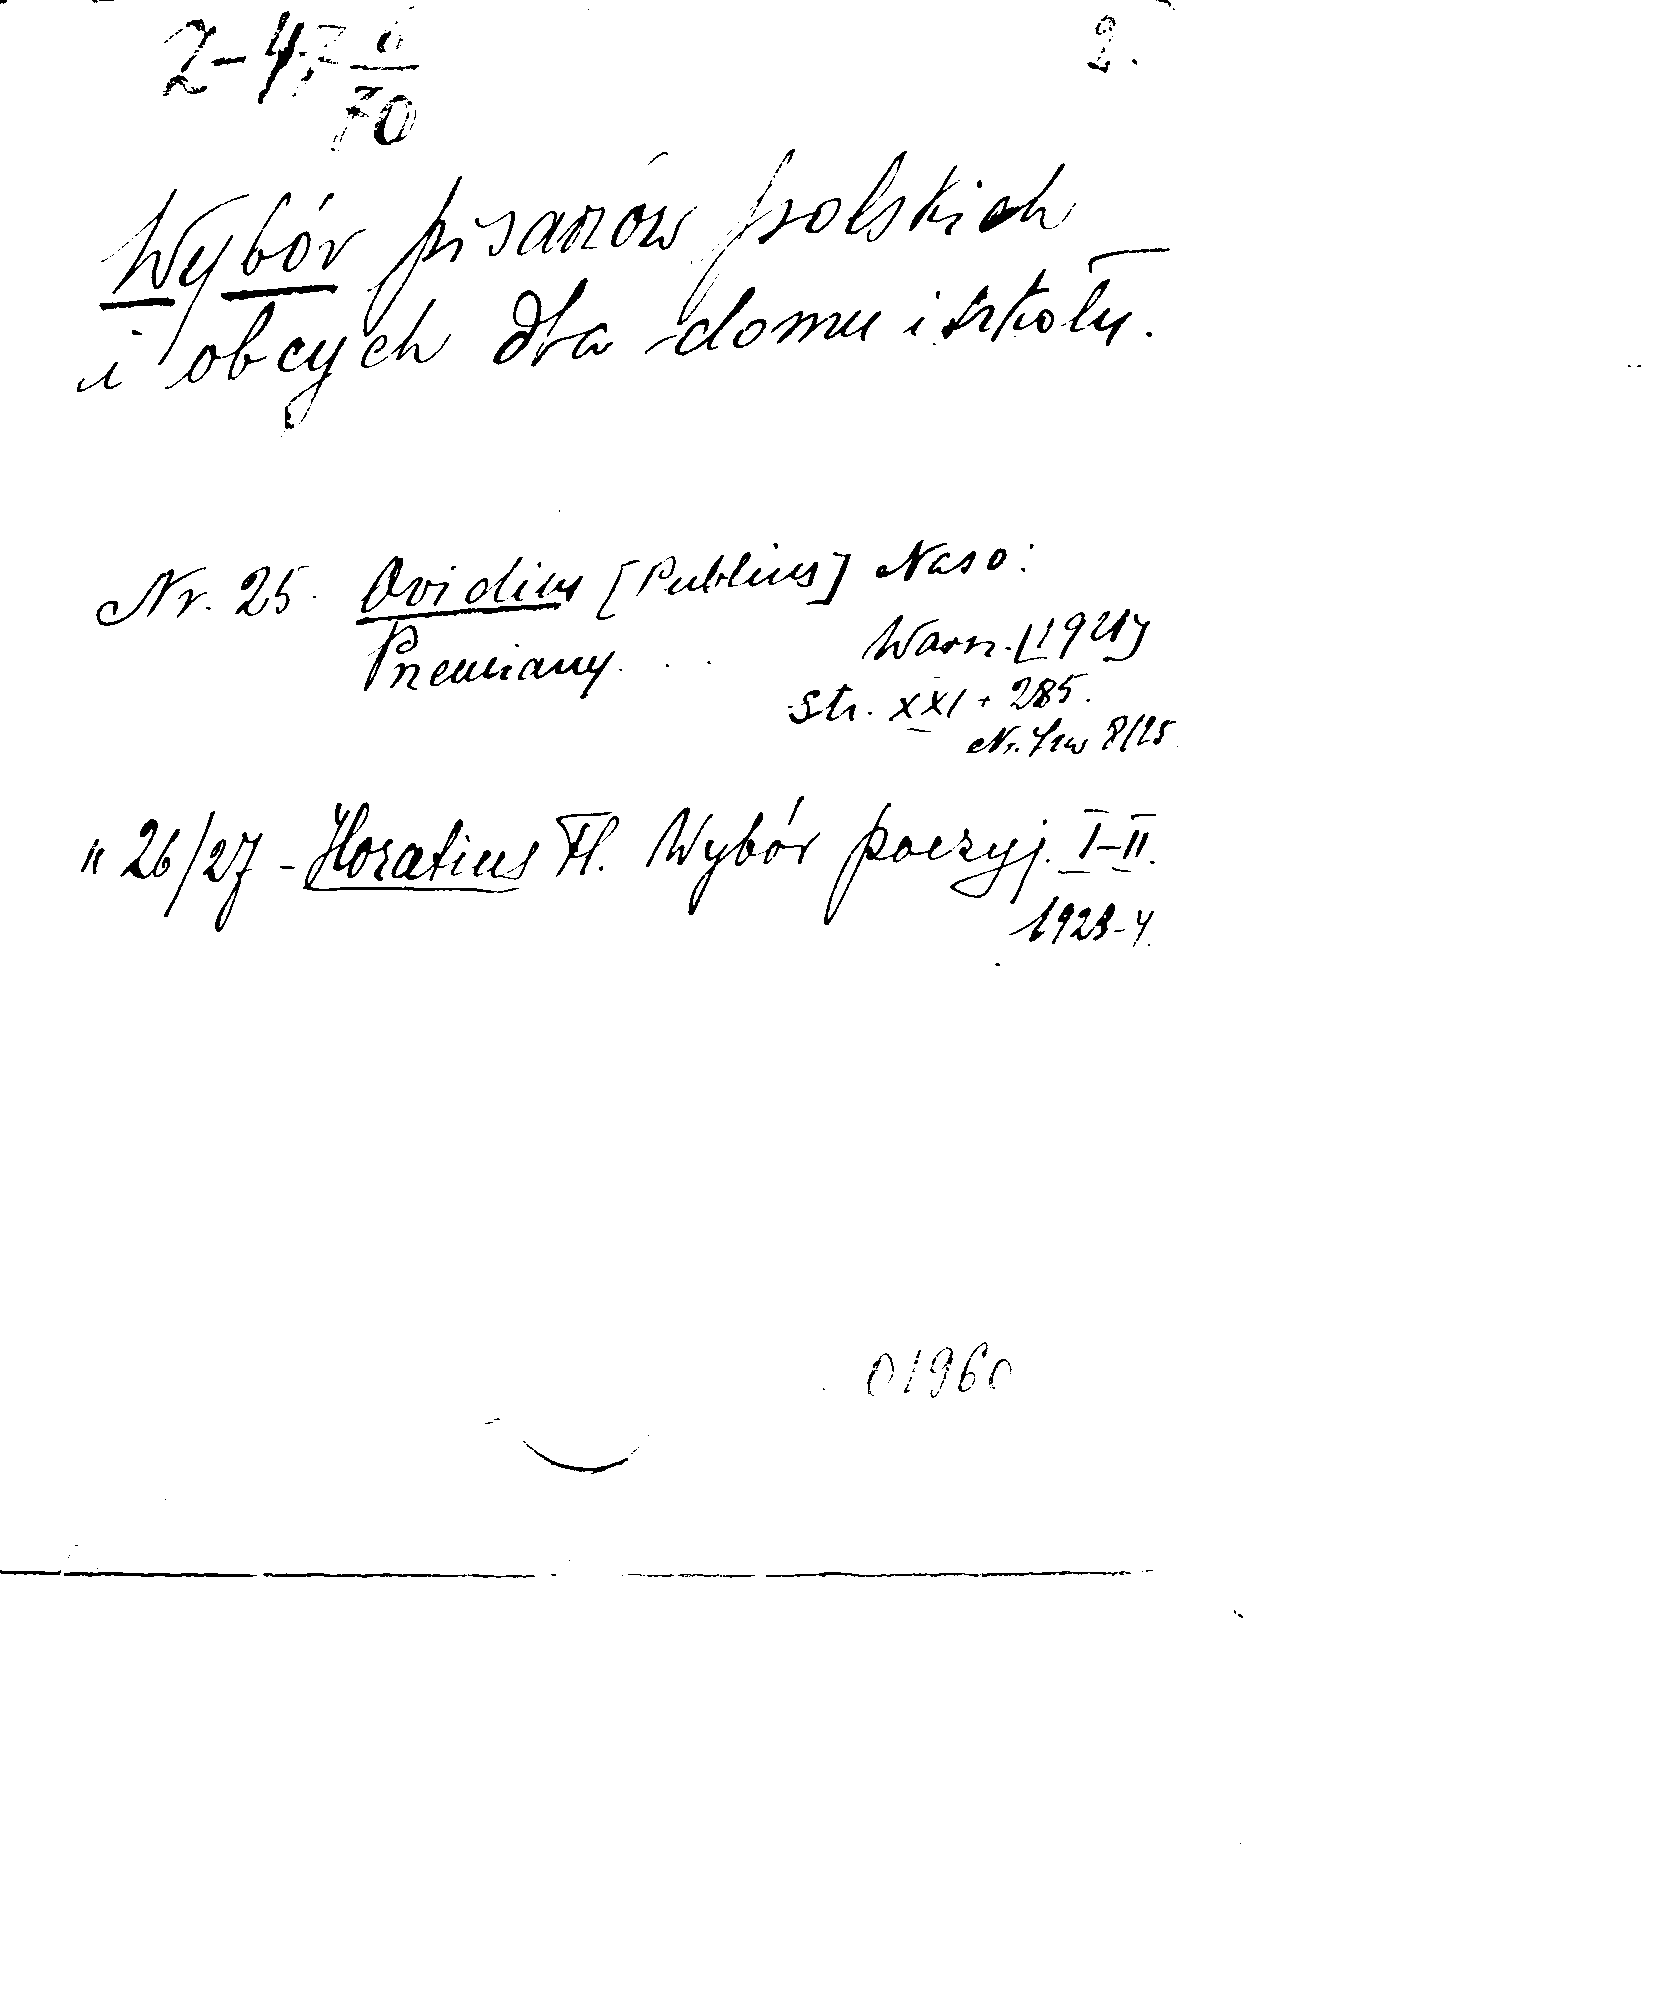 2-47
70
2.
Wybór pisarzów polskich
i obcych dla domu i szkoły.
Nr. 25. Ovidius [Publius] Naso:
Przemiany . . . Warsz. [1921]
str. XXI + 285.
Nr. 8/25
" 26/27 - Horatius Fl. Wybór poezyj. I-II.
1923-4.
01960